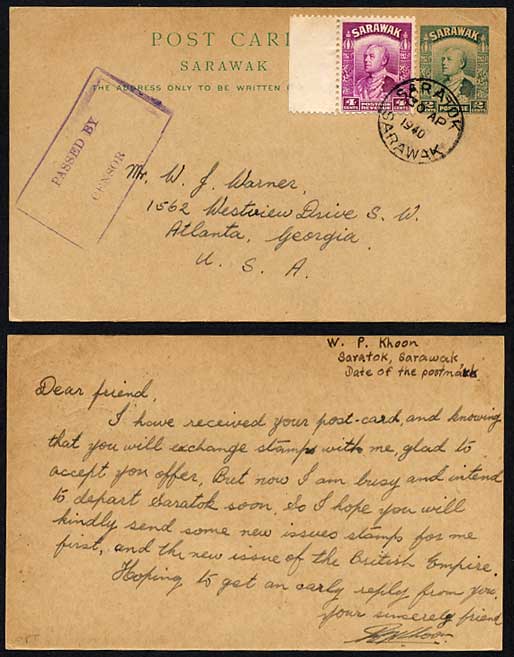 POST CARD
SARAWAK
THE ADDRESS ONLY TO BE WRITTEN
SARAWAK
4 CENTS
POSTAGE
REVENUE
4 CENTS
SARAWAK
2 CENTS
POSTAGE
2 CENTS
SARATOK
AP
1940
SARAWAK
PASSED BY
CENSOR
Mr. W. J. Warner,
1562 Westview Drive S. W.
Atlanta, Georgia.
U. S. A.
W. P. Khoon
Saratok, Sarawak
Date of the postmark
Dear friend,
I have received your post-card, and knowing
that you will exchange stamps with me, glad to
accept you offer, But now I am busy and intend
to depart Saratok soon, So I hope you will
kindly send some new issues stamps for me
first, and the new issue of the British Empire.
Hoping to get an early reply from you.
your sincerely friend